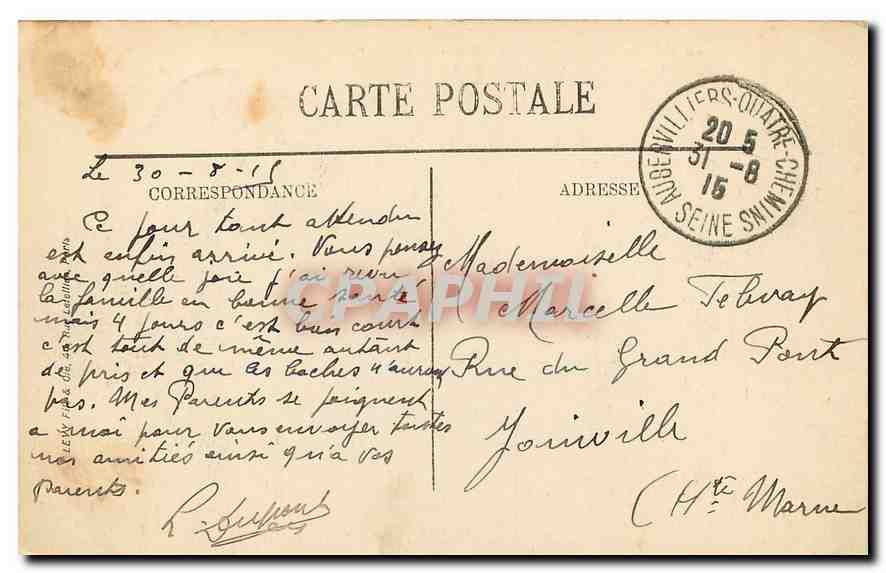 CARTE POSTALE
AUBERVILLIERS-QUATRE-CHEMINS
20 5
31 -8
15
SEINE
Le 30-8-15
CORRESPONDANCE
ADRESSE
Ce jour tant attendu
est enfin arrivé. Vous pensez
avec quelle joie j'ai revu
la famille en bonne santé
mais 4 jours c'est bien court
c'est tout de même autant
de pris et que les boches n'auront
pas. Mes Parents se joignent
a moi pour vous envoyer toutes
nos amitiés ainsi qu'a vos
parents.
L. Dupont
Mademoiselle
Marcelle
Rue du Grand Pont
Joinville
(Hte Marne
LEVY Fils & Cie, 44, Rue Letellier, Paris
CAPHILL